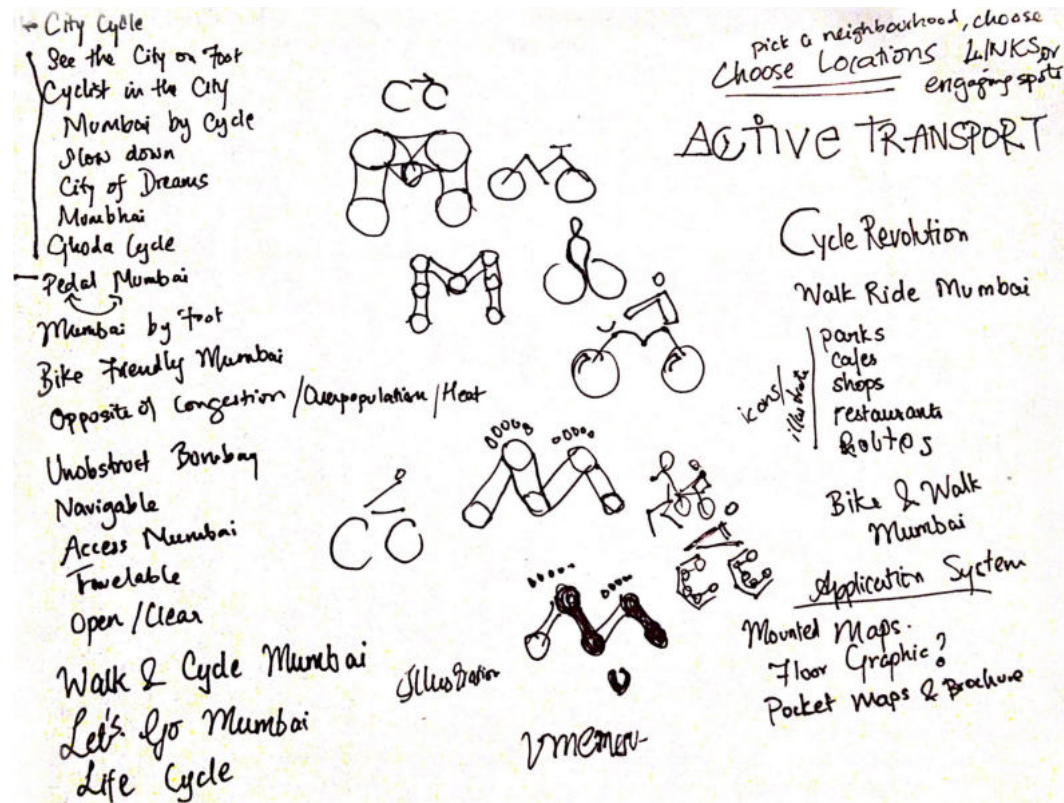 City Cycle
See the City on Foot
Cyclist in the City
Mumbai by Cycle
Slow down
City of Dreams
Mumbhai
Ghoda Cycle
Pedal Mumbai
Mumbai by Foot
Bike Friendly Mumbai
Opposite of Congestion / Overpopulation / Heat
Unobstruct Bombay
Navigable
Access Mumbai
Travelable
Open / Clear
Walk & Cycle Mumbai
Let's Go Mumbai
Life Cycle
Illustration
pick a neighbourhood, choose
Choose Locations LINKS or
engaging spots
ACTIVE TRANSPORT
Cycle Revolution
Walk Ride Mumbai
icons/
parks
cafes
shops
restaurants
Routes
Bike & Walk
Mumbai
Application System
Mounted Maps.
Floor Graphic?
Pocket Maps & Brochure